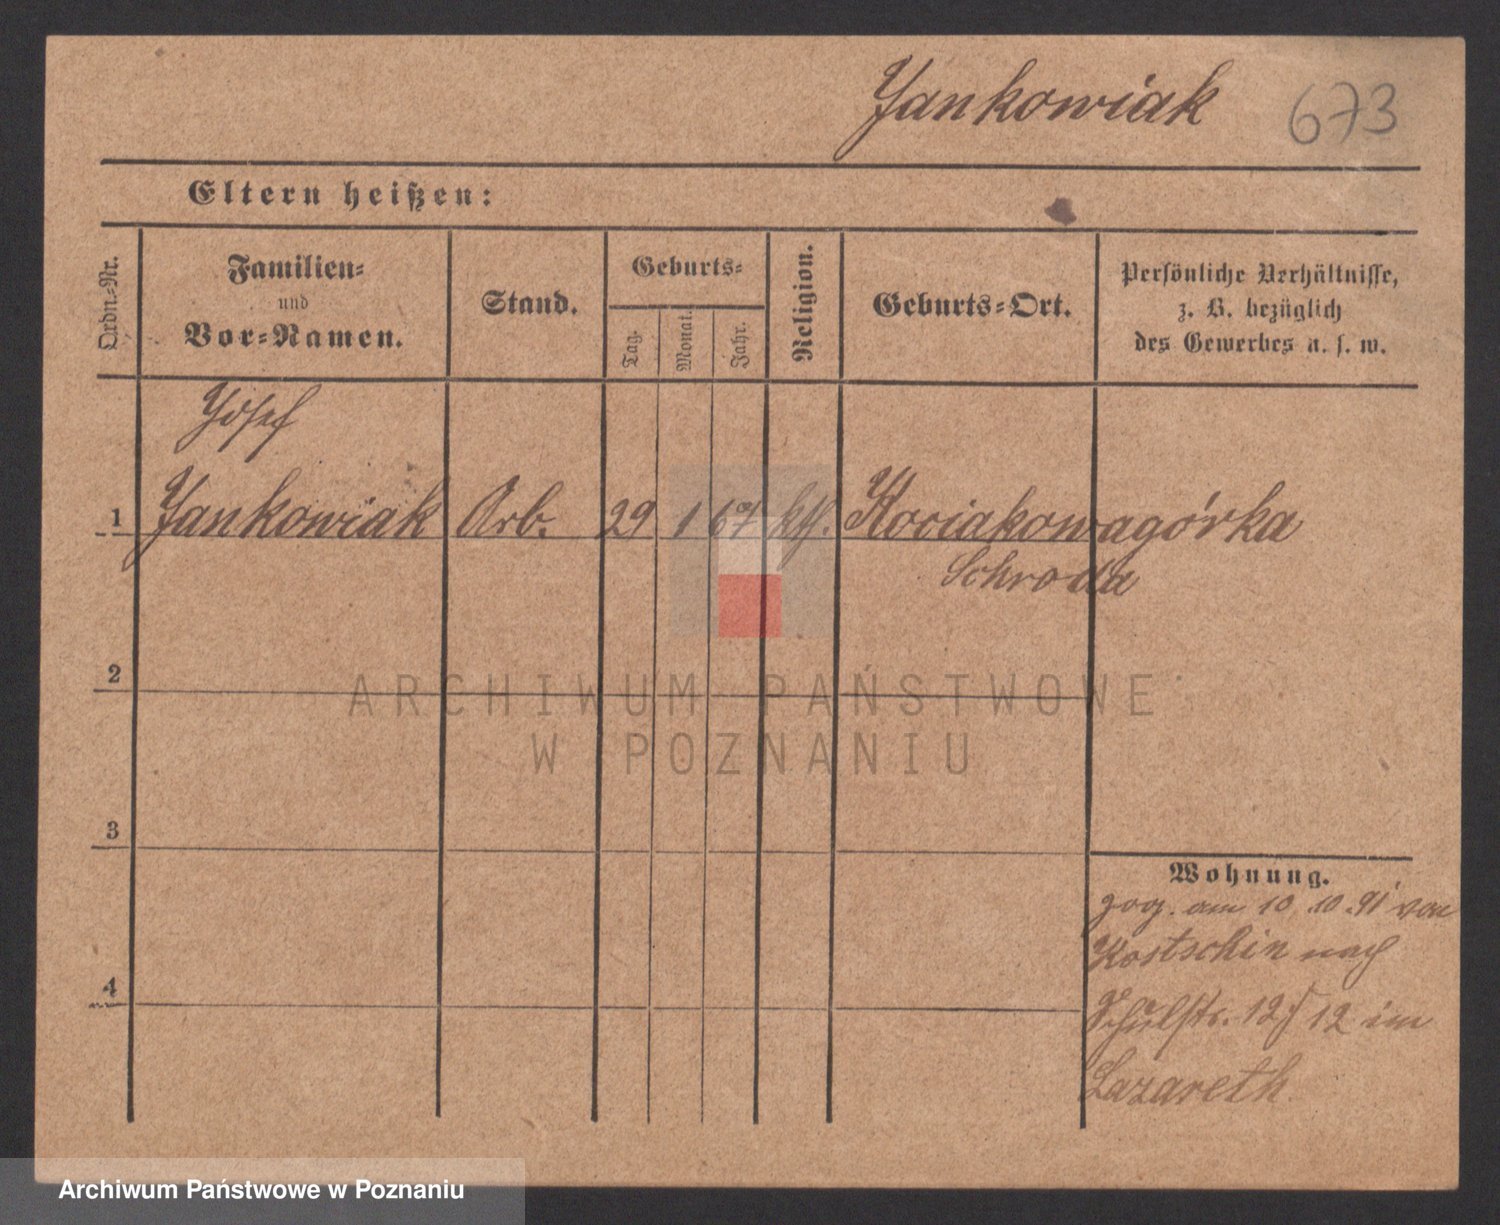 Jankowiak 673
Eltern heißen:
Ordn.-Nr.
Familien-
und
Vor-Namen.
Stand.
Geburts-
Tag.
Monat.
Jahr.
Religion.
Geburts-Ort.
Persönliche Verhältnisse,
z. B. bezüglich
des Gewerbes u. s. w.
Josef
1 Jankowiak Arb. 29 1 67 kth. Kociakowagórka
Schroda
2
3
4
Wohnung.
zog. am 10.10.91 von
Kostschin nach
Schulstr. 12 12 im
Lazareth.
ARCHIWUM PAŃSTWOWE
W POZNANIU
Archiwum Państwowe w Poznaniu